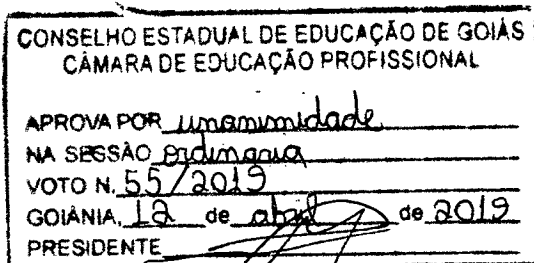 CONSELHO ESTADUAL DE EDUCAÇÃO DE GOIÁS
CÂMARA DE EDUCAÇÃO PROFISSIONAL
APROVA POR unanimidade
NA SESSÃO ordinaria
VOTO N. 55/2019
GOIÂNIA, 12 de abril de 2019
PRESIDENTE